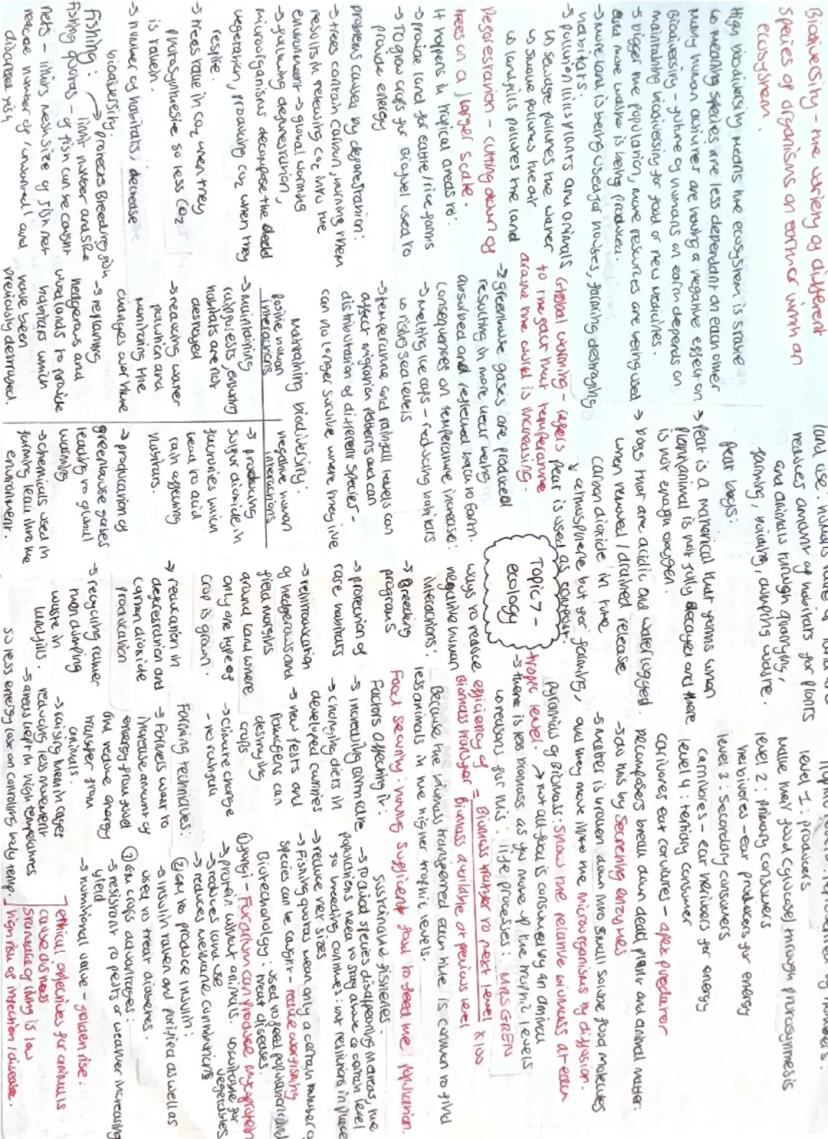 Biodiversity - the variety of different
species of organisms on earth or within an
ecosystem.
High biodiversity means the ecosystem is stable
↳ meaning species are less dependant on each other
Many human activities are having a negative effect on
Biodiversity - future of humans on earth depends on
maintaining biodiversity for food or new medicines.
→ bigger the population, more resources are being used
and more waste is being produced.
→ more land is being used for houses, farming destroying
habitats.
→ pollution kills plants and animals
↳ sewage pollutes the water
↳ smoke pollutes the air
↳ landfills pollutes the land
Deforestation - cutting down of
trees on a larger scale.
It happens in tropical areas to:
→ provide land for cattle/rice farms
→ To grow crops for Biofuel used to
provide energy
problems caused by deforestation:
→ trees contain carbon, burning them
results in releasing CO2 into the
environment → global warming
→ following deforestation,
microorganisms decompose the dead
vegetation, producing CO2 when they
respire.
→ trees take in CO2 when they
photosynthesise so less CO2
is taken.
→ number of habitats decrease
biodiversity.
Fishing: → protects breeding fish
Fishing quotas - limit number and size
of fish can be caught
nets - limits mesh size of fish net
reduce number of unwanted and
discarded fish
Global warming - refers
to the fact that temperature
around the world is increasing.
→ greenhouse gases are produced
resulting in more heat being
absorbed and reflected back to Earth.
Consequences on temperature increase:
→ melting ice caps - reducing habitats
↳ rising sea levels
→ temperature and rainfall levels can
affect migration patterns and can
distribution of different species -
can no longer survive where they live
Maintaining biodiversity:
positive human
interactions
→ maintaining
rainforests, ensuring
habitats are not
destroyed
→ reducing water
pollution and
monitoring the
changes over time
→ replanting
hedgerows and
woodlands to provide
habitats which
have been
previously destroyed.
negative human
interactions
→ producing
sulfur dioxide in
factories which
lead to acid
rain affecting
habitats.
→ production of
greenhouse gases
leading to global
warming
→ chemicals used in
farming leak into the
environment.
reduces amount of habitats for plants
and animals through quarrying,
farming, building, dumping waste.
Peat bogs:
→ Peat is a material that forms when
plant/animal is not fully decayed and there
is not enough oxygen.
→ bogs that are acidic and waterlogged.
when removed / drained release
carbon dioxide in the
↓ atmosphere but for farming,
Peat is used as compost.
Topic 7 -
ecology
ways to reduce
negative human
interactions:
→ Breeding
programs
→ protection of
rare habitats
→ reintroduction
of hedgerows and
field margins
around land where
only one type of
crop is grown.
→ reduction in
deforestation and
carbon dioxide
production
→ recycling rather
than dumping
waste in
landfills.
level 1: producers
make their food (glucose) through photosynthesis
level 2: primary consumers
herbivores - eat producers for energy
level 3: Secondary consumers
carnivores - eat herbivores for energy
level 4: tertiary consumer
carnivores eat carnivores - apex predator
Decomposers break down dead plant and animal matter:
→ do this by secreting enzymes
→ matter is broken down into small soluble food molecules
and they move into the microorganisms by diffusion.
Pyramids of Biomass: show the relative biomass at each
tropic level. → not all food is consumed by an animal
→ there is less biomass as you move up the trophic levels
↳ reasons for this: life processes: MRS GREN
efficiency of
biomass transfer = Biomass transfer to next level x 100
Biomass available at previous level
Because the biomass transferred each time is common to find
less animals in the higher trophic levels.
Food security: having sufficient food to feed the population.
Factors affecting it:
→ increasing birth rate
→ changing diets in
developed countries
→ new pests and
pathogens can
destroy
crops
→ climate change
- no rainfall
Farming techniques:
→ Farmers want to
increase amount of
energy from food
and reduce energy
transfer from
animals.
→ raising them in cages
reducing less movement
→ areas kept in high temperatures
so less energy lost on controlling body temp.
Sustainable fisheries:
→ to avoid species disappearing in areas, the
populations need to stay above a certain level
so breeding continues: put restrictions in place
→ reduce net sizes
→ Fishing quotas mean only a certain number of
species can be caught - reduce overfishing
Biotechnology: used to feed population and
treat diseases.
① Fungi - Fusarium can produce mycoprotein
→ protein without animals. ↳ suitable for
vegetarians
→ reduces land use
→ reduces methane contributions
② GM to produce insulin:
→ insulin taken and purified as well as
used to treat diabetes.
③ GM crops advantages:
→ resistant to pests or weather increasing
yield
→ nutritional value - golden rice.
→ ethical objectives for animals
cause distress
standard of living is low
high risk of infection / disease.